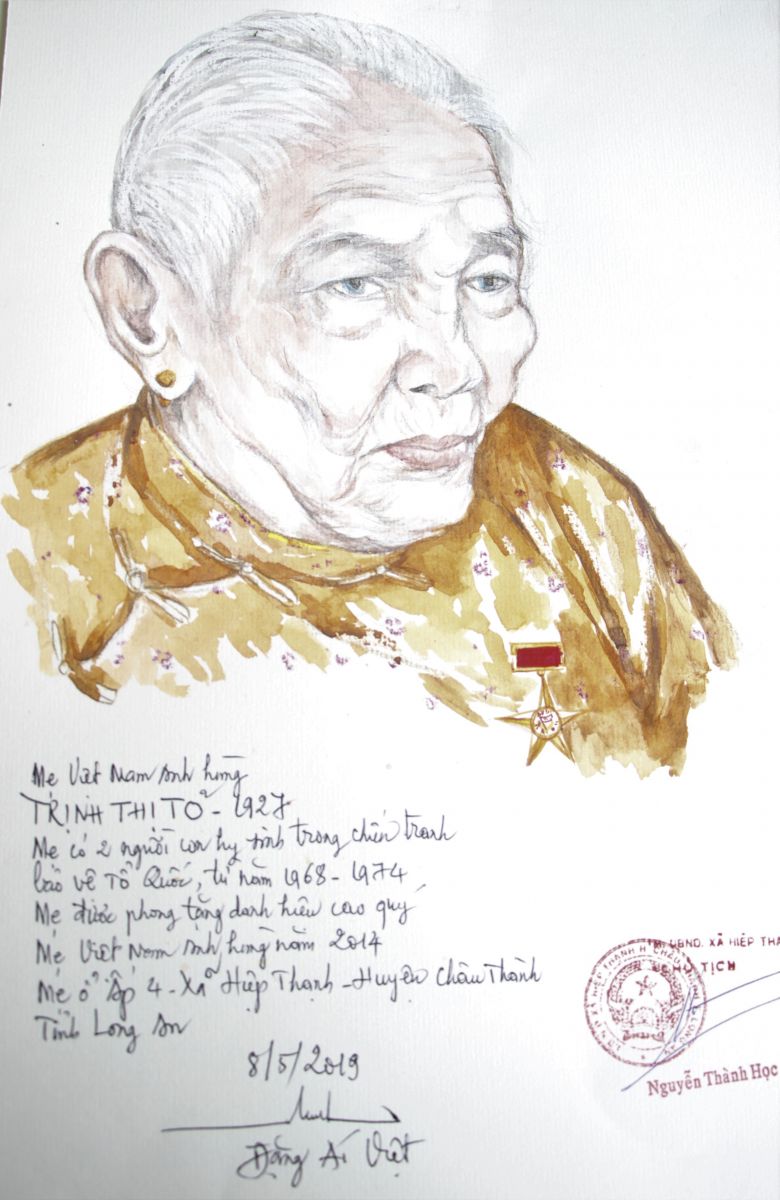 Mẹ Việt Nam Anh hùng
TRỊNH THỊ TỎ - 1927
Mẹ có 2 người con hy sinh trong chiến tranh
bảo vệ Tổ Quốc, từ năm 1968 - 1974
Mẹ được phong tặng danh hiệu cao quý
Mẹ Việt Nam Anh hùng năm 2014
Mẹ ở Ấp 4 - Xã Hiệp Thạnh - Huyện Châu Thành
Tỉnh Long An
8/5/2019
Đặng Ái Việt
UBND. XÃ HIỆP THA
CHỦ TỊCH
Nguyễn Thành Học